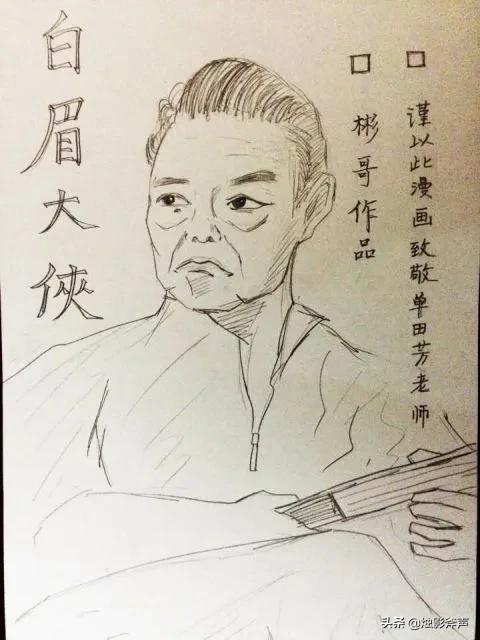 白眉大俠
□ 彬哥作品
□ 谨以此漫画致敬单田芳老师
头条 @烛影斧声